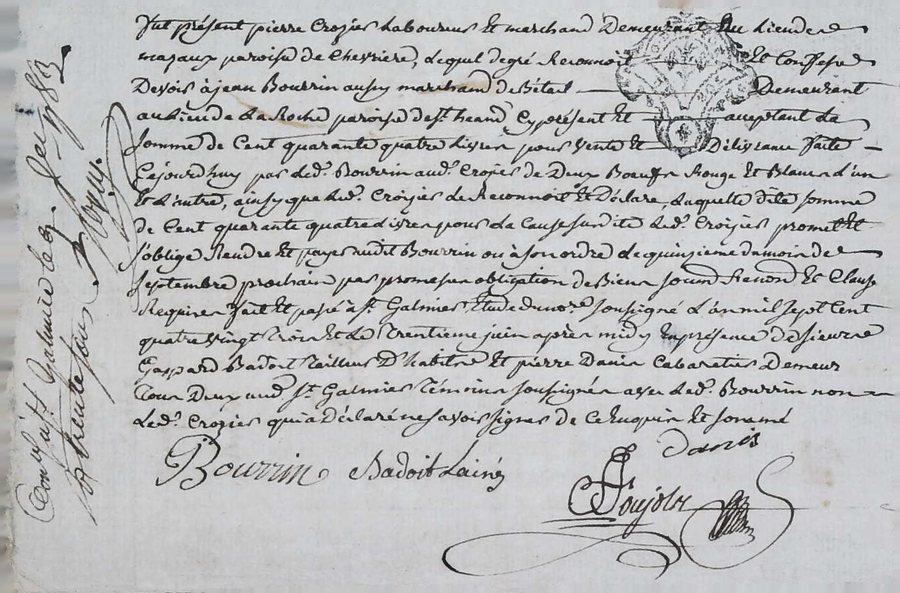 fut présent pierre Crozies Laboureur Et marchand Demeurant Au Lieu de
mazaux paroisse de Chevriere, Lequel de gré Reconnoit Et Confesse
Devoir à jean Bourrin aussy marchand de Bétail Demeurant
au Lieu de La Roche paroisse de St. heand Cy présent Et acceptant La
somme de Cent quarante quatre Livres pour vente Et Délivrance faite
Cejourdhuy par Led. Bourrin aud. Crozies de Deux Boeufs Rouge Et Blanc L'un
Et L'autre, ainsy que Led. Crozies Le Reconnoit Et Déclare, Laquelle dite somme
de Cent quarante quatre Livres pour La Cause susdite Led. Crozies promet Et
s'oblige Rendre Et payer audit Bourrin ou à son ordre Le quinzieme du mois de
septembre prochain par promesse obligation de Biens soumi Renond Et Clause
Requises fait Et passé à St. Galmier Etude du no.re soussigné L'an mil sept Cent
quatre vingt trois Et Le Trentieme juin après midy En présence de sieurs
Gaspard Badoit Tailleur D'habits Et pierre Danis Cabaratier Demeur
Tous Deux aud. St. Galmier Témoins soussignés avec Led. Bourrin non
Led. Crozies qui a Déclaré ne savoir signer de Ce Enquis Et sommé
Danis
Bourrin Badoit Lainé
Poujols
Conlé à St Galmier le
Rx trente sous